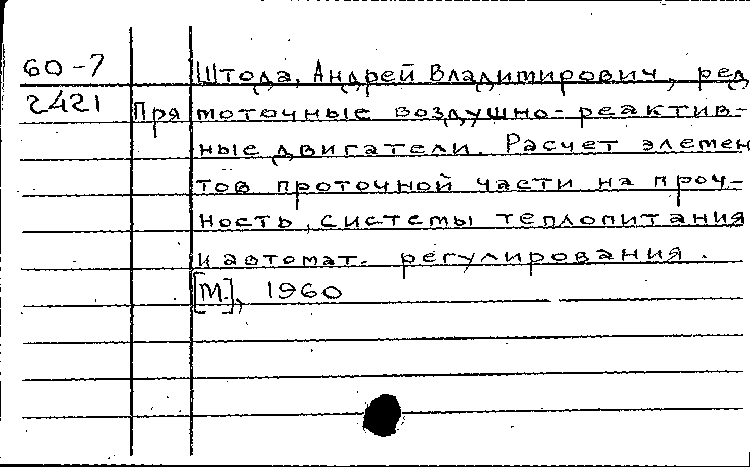 60-7 Штода, Андрей Владимирович, ред
2421 Пря моточные воздушно-реактив-
ные двигатели. Расчет элемен
тов проточной части на проч-
ность, системы теплопитания
и автомат. регулирования.
[М.], 1960